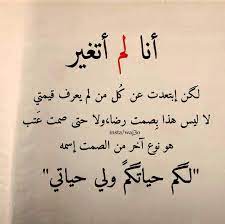 أنا لم أتغير
لكن إبتعدت عن كُل من لم يعرف قيمتي
لا ليس هذا بِصمت رضا، ولا حتى صمت عَتب
insta/waj3o
هو نوع آخر من الصمت إسمه
"لكُم حياتكُمُ ولي حياتي"